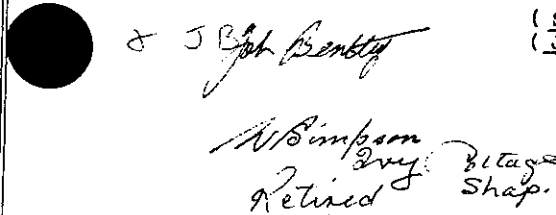 & J B John Bentley
W Simpson
Ivy Cottage
Retired Shap.